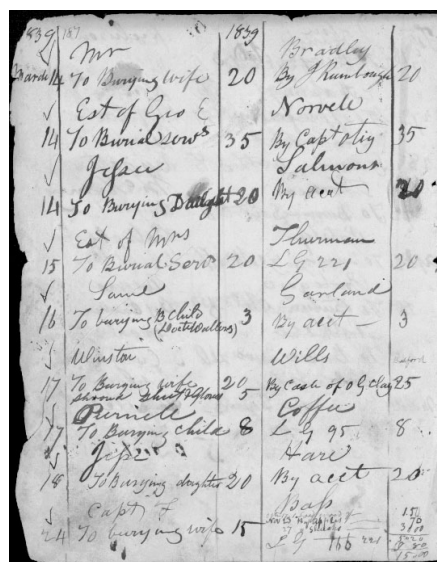 1839 187 1839
Mr Bradley
March 14 To Burying Wife 20 By J Rumbough 20
Est of Geo E Norvell
14 To Burial servs 35 By Capt Otey 35
Jesse Salmons
14 To Burying Daught 20 By acct 20
Est of Mrs Thurman
15 To Burial Servs 20 L G 221 20
Saml Garland
16 To burying B Child 3 By acct 3
(Doct Wallers)
Winston Wills
17 To Burying wife 20 By Cash of O G Clay 25
shroud Sheet & Gloves 5
Pernell Coffee
17 To Burying child 8 L G 95 8
Jesse Hare
18 To Burying daughter 20 By acct 20
Capt T Bass
24 To burying wife 15 L G 166 221 15 00